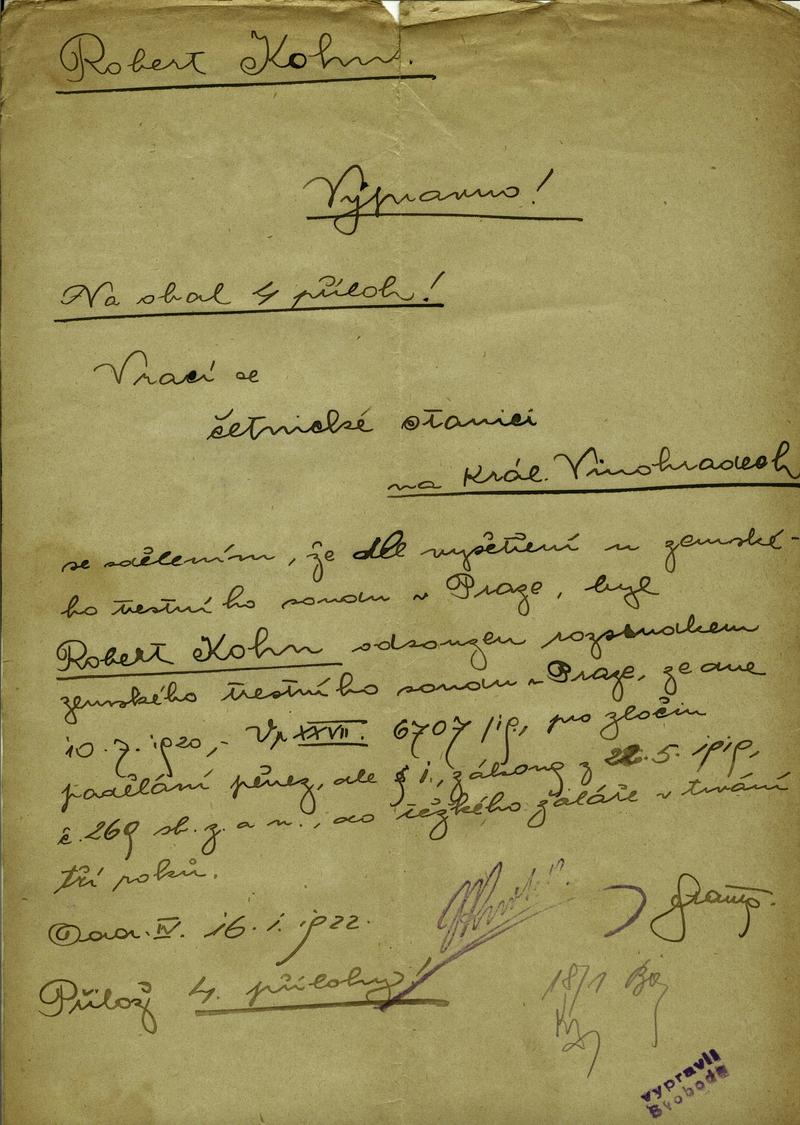 Robert Kohn.
Výpravno!
Na obal 4 příloh!
Vrací se
četnické stanici
na Král. Vinohradech
se sdělením, že dle vyšetření u zemské-
ho trestního soudu v Praze, byl
Robert Kohn odsouzen rozsudkem
zemského trestního soudu v Praze, ze dne
10.7.1920,- Vr XXVII. 6707/19, pro zločin
padělání peněz, dle § 1., zákona z 22.5.1919,
č. 269 sb. z. a n., do těžkého žaláře v trvání
tří roků.
Odd. IV. 16.1.1922.
Přilož 4. přílohy!
18/1
vypravil
Svoboda